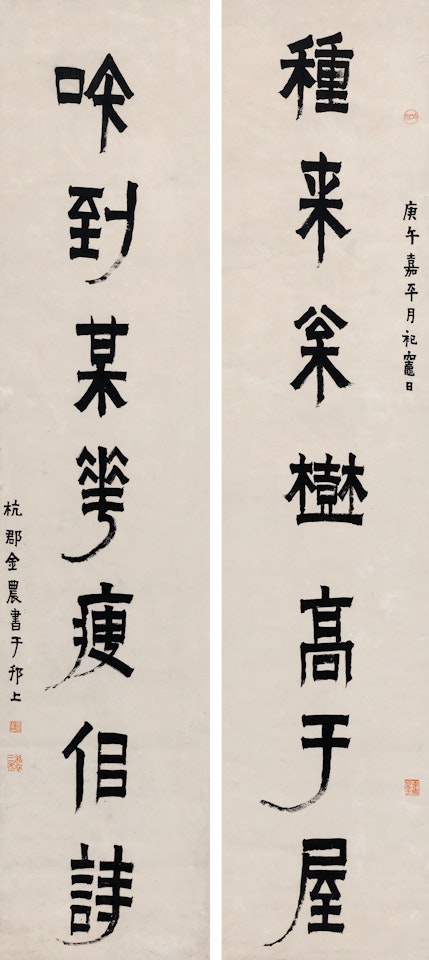 庚午嘉平月祀竈日
種来枀樹高于屋
吟到某華瘦佀詩
杭郡金農書于邗上